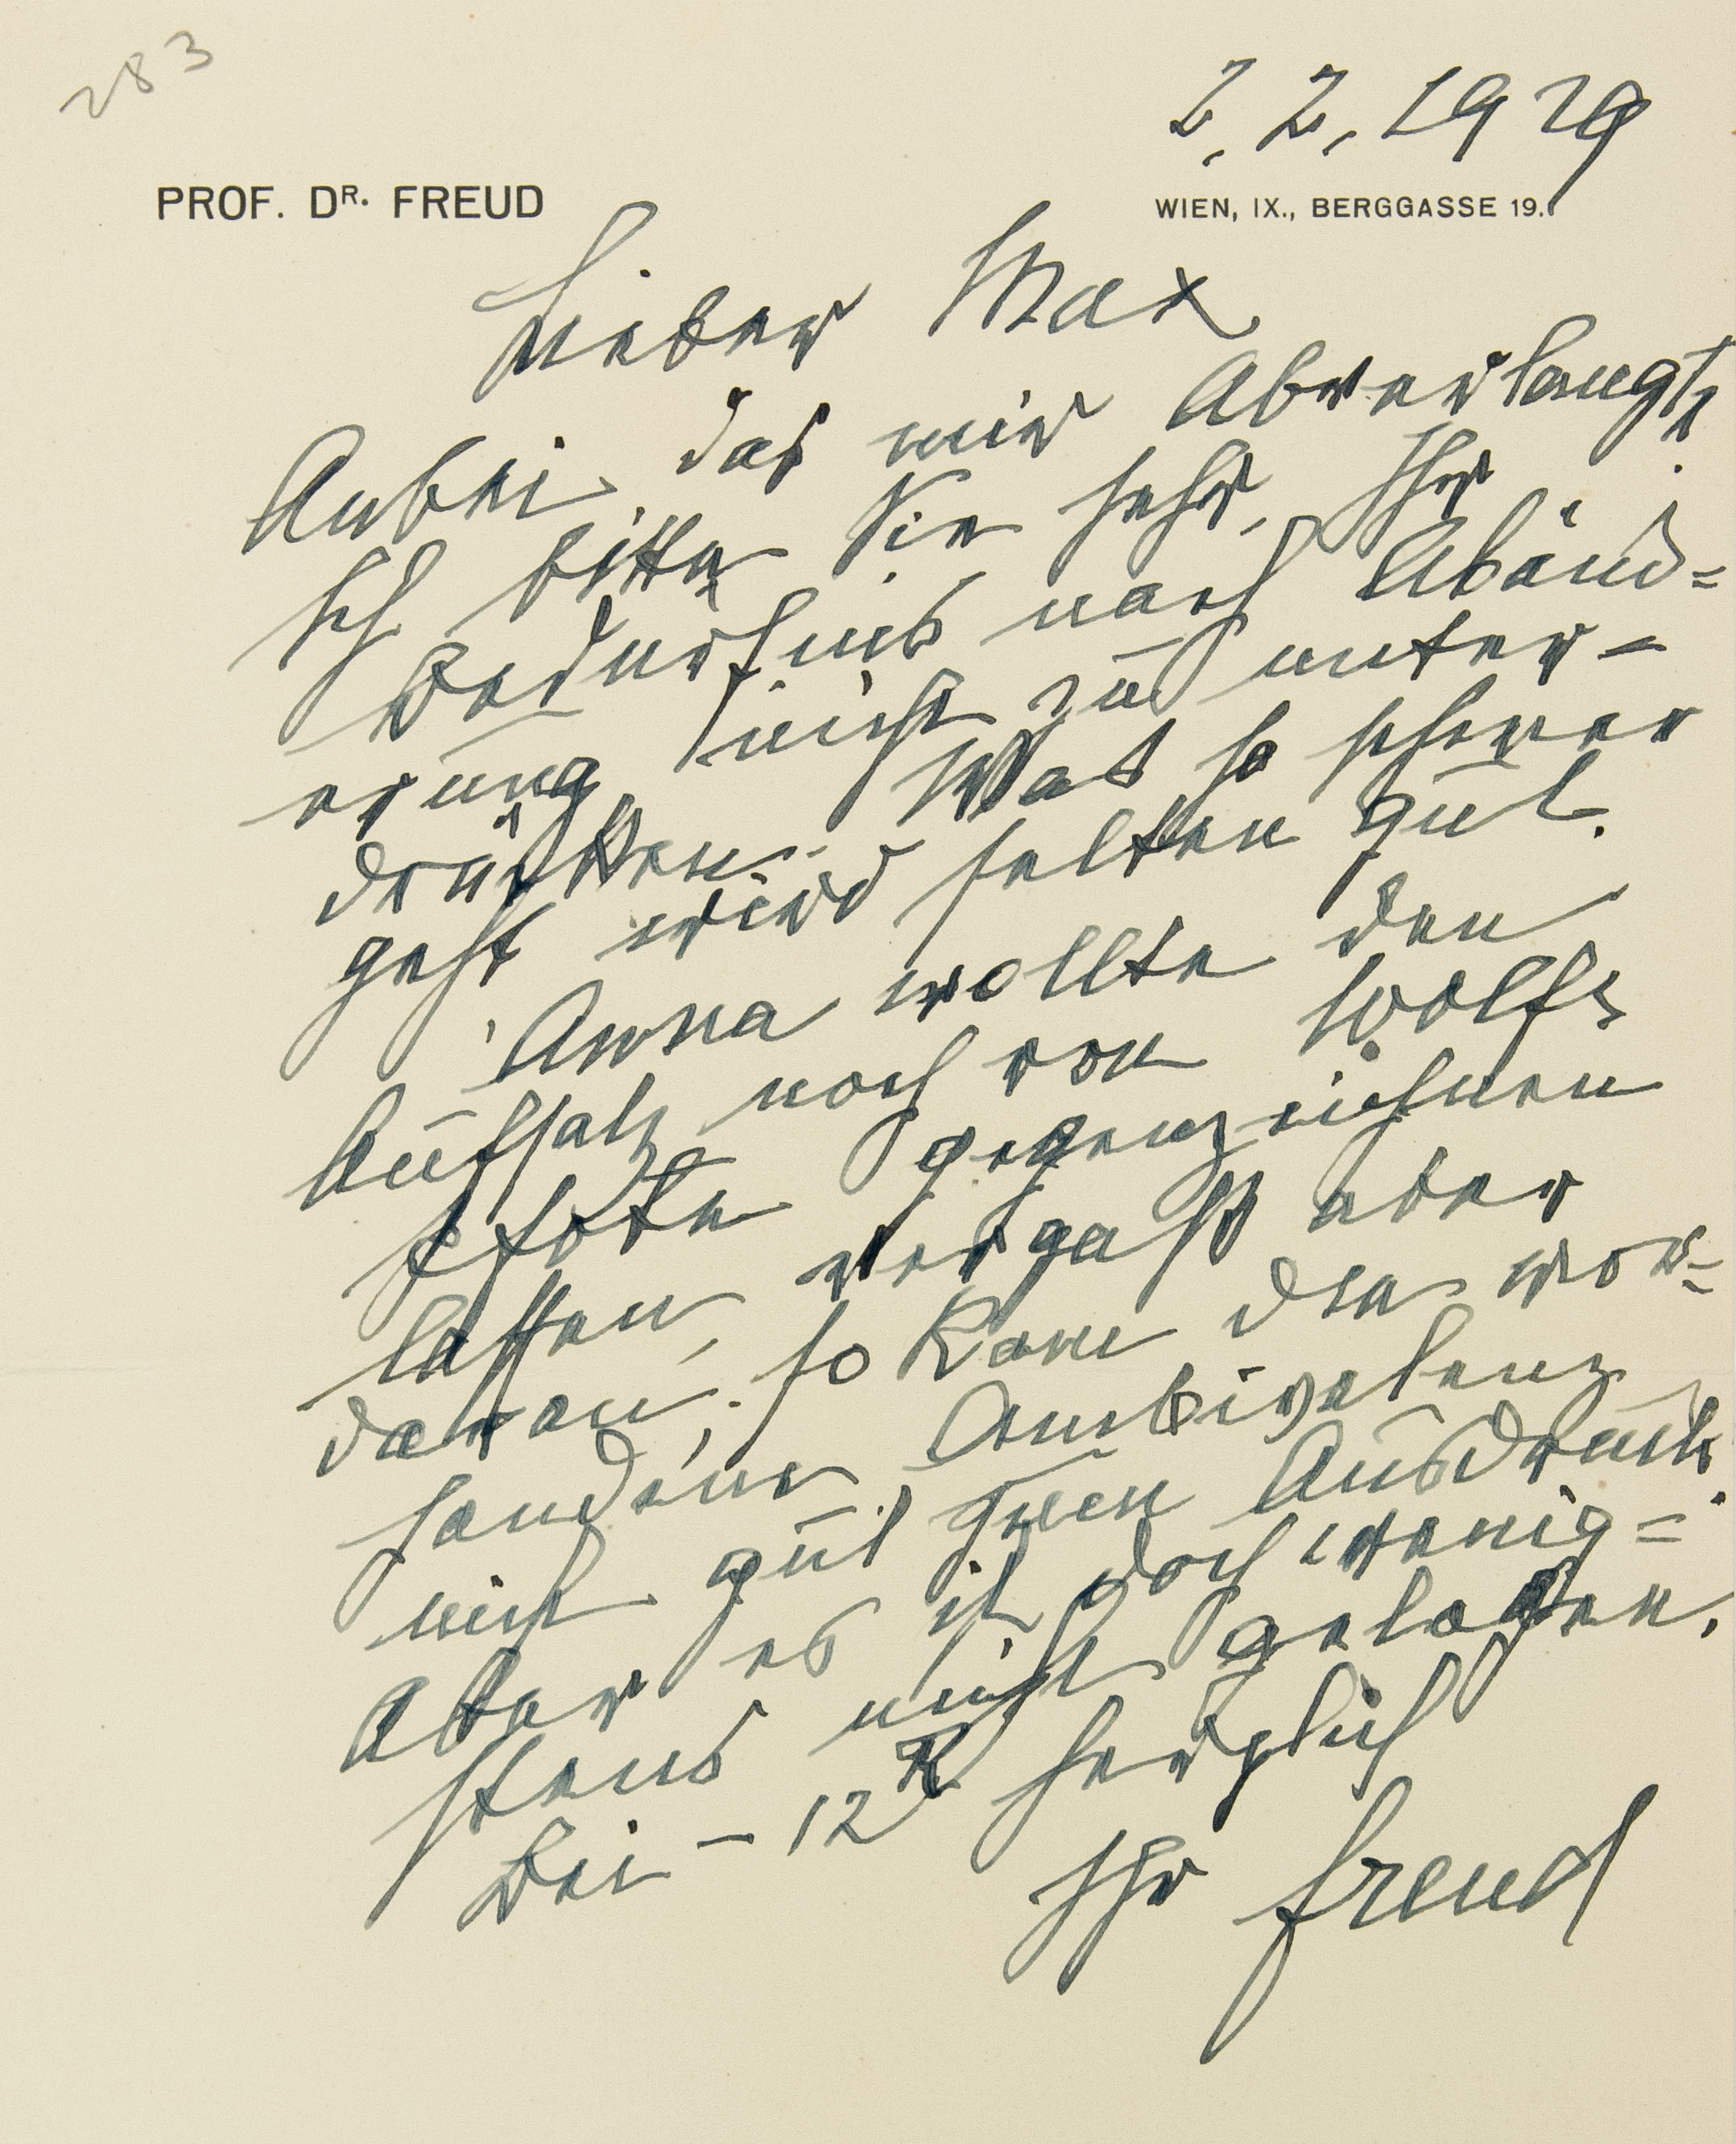 283
2. 2. 1929
PROF. DR. FREUD
WIEN, IX., BERGGASSE 19.
Lieber Max
Anbei das mir Abverlangte.
Ich bitte Sie sehr, Ihr
Bedürfnis nach Abänd=
erung nicht zu unter-
drücken. Was so schwer
geht wird selten gut.
Anna wollte den
Aufsatz noch von Wolfs
Pfote gegenzeichnen
lassen, vergaß aber
daran; so kam die vor-
handene Ambivalenz
nicht gut zum Ausdruck
Aber es ist doch wenig=
stens nicht gelogen.
Bei - 12 herzlich
Ihr Freud